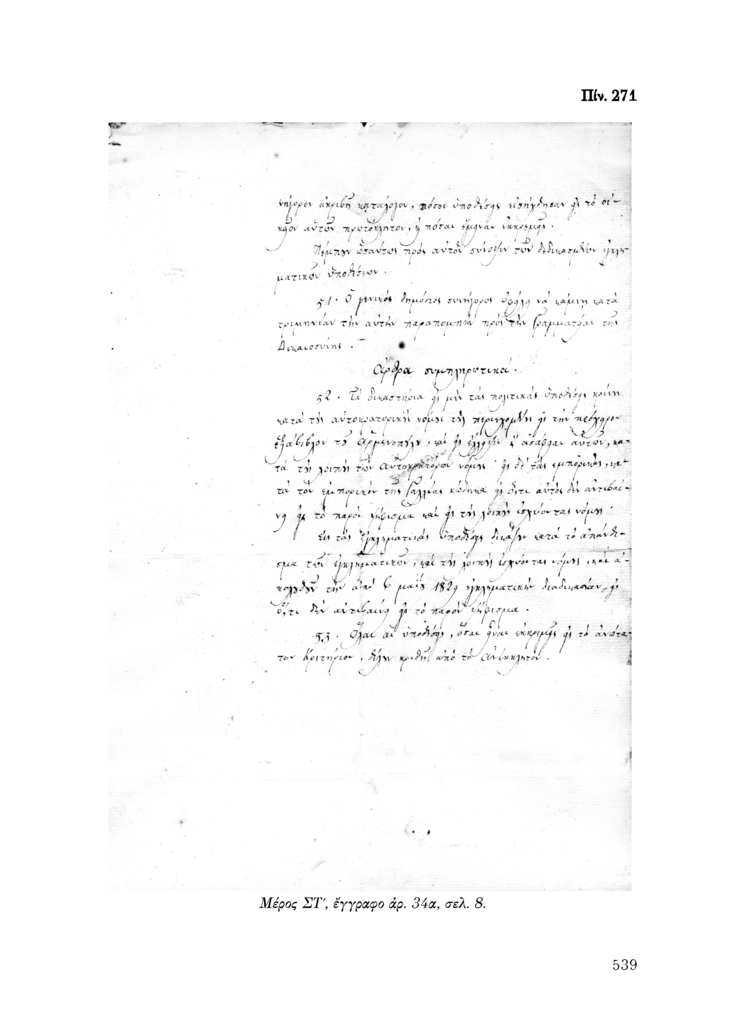 Πίν. 271
νήγορον ἀκριβῆ κατάλογον, πόσαι ὑποθέσεις εἰσήχθησαν εἰς τὸ οἰ-
κεῖον αὐτῶν πρωτόκλητον, ἢ πόσαι ἔμειναν ἐκκρεμεῖς.
Πέμπει ὡσαύτως πρὸς αὐτὸν σύνοψιν τῶν δεδικασμένων ἐγκλη-
ματικῶν ὑποθέσεων.
51. Ὁ γενικὸς δημόσιος συνήγορος ὀφείλει νὰ κάμνῃ κατὰ
τριμηνίαν τὴν αὐτὴν παραπομπὴν πρὸς τὴν Γραμματείαν τῆς
Δικαιοσύνης.
Ἄρθρα συμπληρωτικά.
52. Τὰ δικαστήρια εἰς μὲν τὰς πολιτικὰς ὑποθέσεις κρίνει
κατὰ τοὺς αὐτοκρατορικοὺς νόμους τοὺς περιεχομένους εἰς τὴν πρόχειρον
ἑξάβιβλον τοῦ Ἁρμενοπούλου, καὶ εἰς ἔλλειψιν ἢ ἀσάφειαν αὐτῶν, κα-
τὰ τοὺς λοιποὺς τῶν αὐτοκρατόρων νόμους· εἰς δὲ τὰς ἐμπορικάς, κα-
τὰ τὸν ἐμπορικὸν τῆς Γαλλίας κώδηκα εἰς ὅ,τι αὐτὸς δὲν ἀντιβαί-
νει εἰς τὸ παρὸν ψήφισμα καὶ εἰς τοὺς λοιποὺς ἰσχύοντας νόμους.
Εἰς τὰς ἐγκληματικὰς ὑποθέσεις δικάζει κατὰ τὸ ἀπάνθι-
σμα τῶν ἐγκληματικῶν, καὶ τοὺς λοιποὺς ἰσχύοντας νόμους, καὶ ἀ-
κολουθεῖ τὴν ἀπὸ 6 μαΐου 1829 ἐγκληματικὴν διαδικασίαν, εἰς
ὅ,τι δὲν ἀντιβαίνει εἰς τὸ παρὸν ψήφισμα.
53. Ὅλαι αἱ ὑποθέσεις, ὅσαι εἶναι ἐκκρεμεῖς εἰς τὸ ἀνώτα-
τον Κριτήριον, θέλει κριθῆ ἀπὸ τὸ ἀνέκκλητον.
Μέρος ΣΤ', ἔγγραφο ἀρ. 34α, σελ. 8.
539